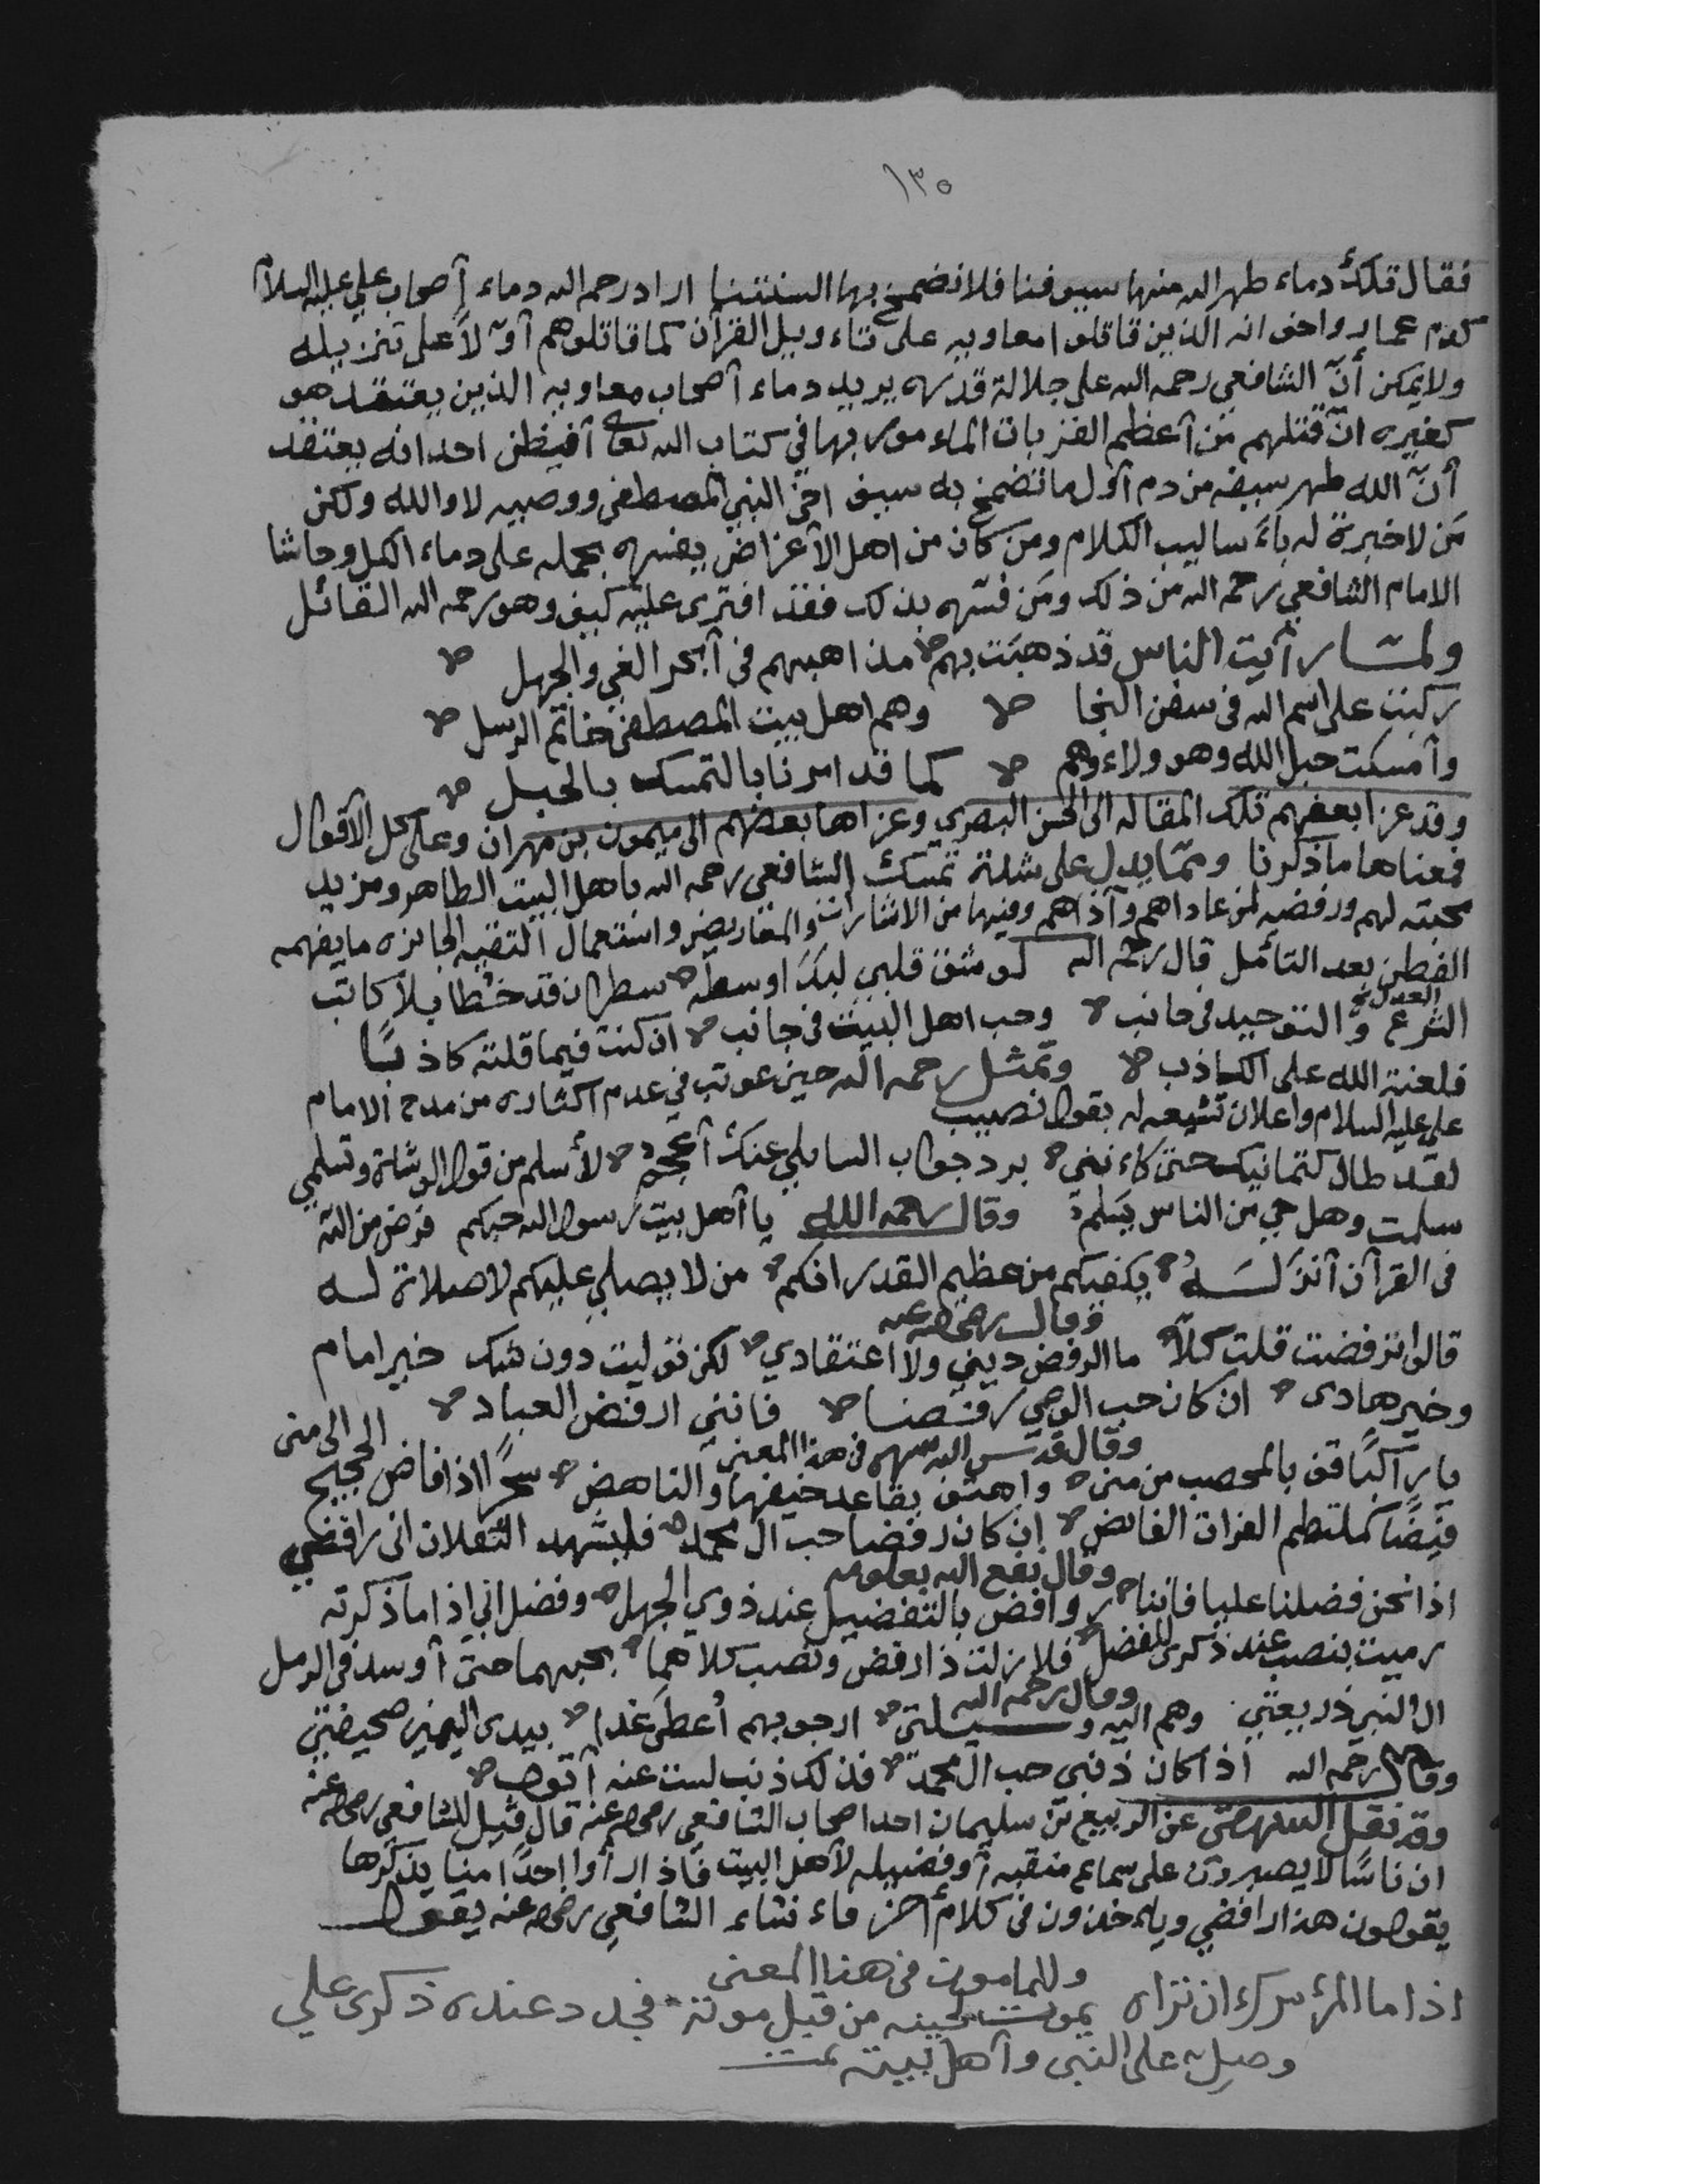 ١٣٥
فقال تلك دماء طهر الله منها سيوفنا فلا نضمخ بها السنتنا اراد رحمه الله دماء أصحاب علي عليه السلام
كدم عمار واخوانه الذين قاتلوا معاويه على تاءويل القرآن كما قاتلوهم أولاً على تنزيله
ولا يمكن أنّ الشافعي رحمه الله على جلالة قدره يريد دماء أصحاب معاويه الذين يعتقد هو
كغيره انّ قتلهم من أعظم القربات الماءمور بها في كتاب الله تعالى أفيظن احد انه يعتقد
أنّ الله طهر سيفه من دم أول ما تضمخ به سيف اخى النبي المصطفى ووصيه لا والله ولكن
مَن لا خبرة له باءساليب الكلام ومن كان من اهل الأغراض يفسره بحمله على دماء الكل وحاشا
الامام الشافعي رحمه الله من ذلك ومَن فسّره بذلك فقد افترى عليه كيف وهو رحمه الله القائل
ولمّا رأيت الناس قد ذهبَت بهم مذاهبهم فى أبحر الغي والجهل
ركبت على اسم الله فى سفن النجا وهم اهل بيت المصطفى خاتم الرسل
وأمسكت حبل الله وهو ولاءوهم كما قد امرنا بالتمسك بالحبل
وقد عزا بعضهم تلك المقاله الى الحسن البصري وعزاها بعضهم الى ميمون بن مهران وعلى كل الأقوال
فمعناها ما ذكرنا وممّا يدل على شدة تمسك الشافعي رحمه الله باهل البيت الطاهر ومزيد
محبته لهم ورفضه لمن عاداهم وآذاهم وفيها من الاشارات والمعاريض واستعمال التقيه الجائزه ما يفهمه
الفطن بعد التأمل قال رحمه الله لو شق قلبي لبَدَا وسطه سطران قد خُطّا بلا كاتب
الشرع والتوحيد فى جانب وحب اهل البيت فى جانب ان كنت فيما قلته كاذبًا
العدل
فلعنة الله على الكاذب وتمثل رحمه الله حين عوتب في عدم اكثاره من مدح الامام
علي عليه السلام واعلان تشيعه له بقول نصيب
لقد طال كتمانيك حتى كاءنني برد جواب السايلي عنك أعجم لأسلم من قول الوشاة وتسلمي
سلمت وهل حي من الناس يَسلم وقال رحمه الله يا أهل بيت رسول الله حبكم فرض من الله
فى القرآن أنزلَهُ يكفيكم من عظيم القدر انكم من لا يصلي عليكم لا صلاة له
وقال رضي الله عنه
قالوا ترفضت قلت كلاّ ما الرفض ديني ولا اعتقادي لكن توليت دون شك خير امام
وخير هادى ان كان حب الوصي رفضا فانني ارفض العباد
وقال قدس الله سره فى هذا المعنى
يا راكبًا قف بالمحصب من منى واهتف بقاعد خيفها والناهض سحرًا اذا فاض الحجيج الى منى
فيضًا كملتطم الفرات الفائض إن كان رفضا حب ال محمد فليشهد الثقلان انى رافضي
وقال نفع الله بعلومه
اذا نحن فضلنا عليا فاننا روافض بالتفضيل عند ذوي الجهل وفضل ابي اذا ما ذكرته
رميت بنصب عند ذكرى للفضل فلا زلت ذا رفض ونصب كلاهما بحبهما حتى أوسد فى الرمل
وقال رحمه الله
ال النبي ذريعتي وهم اليه وسيلتى ارجو بهم أعطى غدا بيدى اليمين صحيفتي
وقال رحمه الله اذا كان ذنبى حب ال محمد فذلك ذنب لست عنه أتوب
وقد نقل عن الربيع بن سليمان احد اصحاب الشافعي رضي الله عنه قال قيل للشافعي رضي الله عنه
ان ناسًا لا يصبرون على سماع منقبه أوفضيله لأهل البيت فاذا رأوا احدًا منا يذكرها
يقولون هذا رافضي وياءخذون فى كلام أخر فاءنشاء الشافعي رضي الله عنه يقول
وللمامون فى هذا المعنى
اذا ما المرء سرك ان تراه يموت لحينه من قبل موته فجدد عنده ذكرى علي
وصل على النبى وأهل بيته تمت